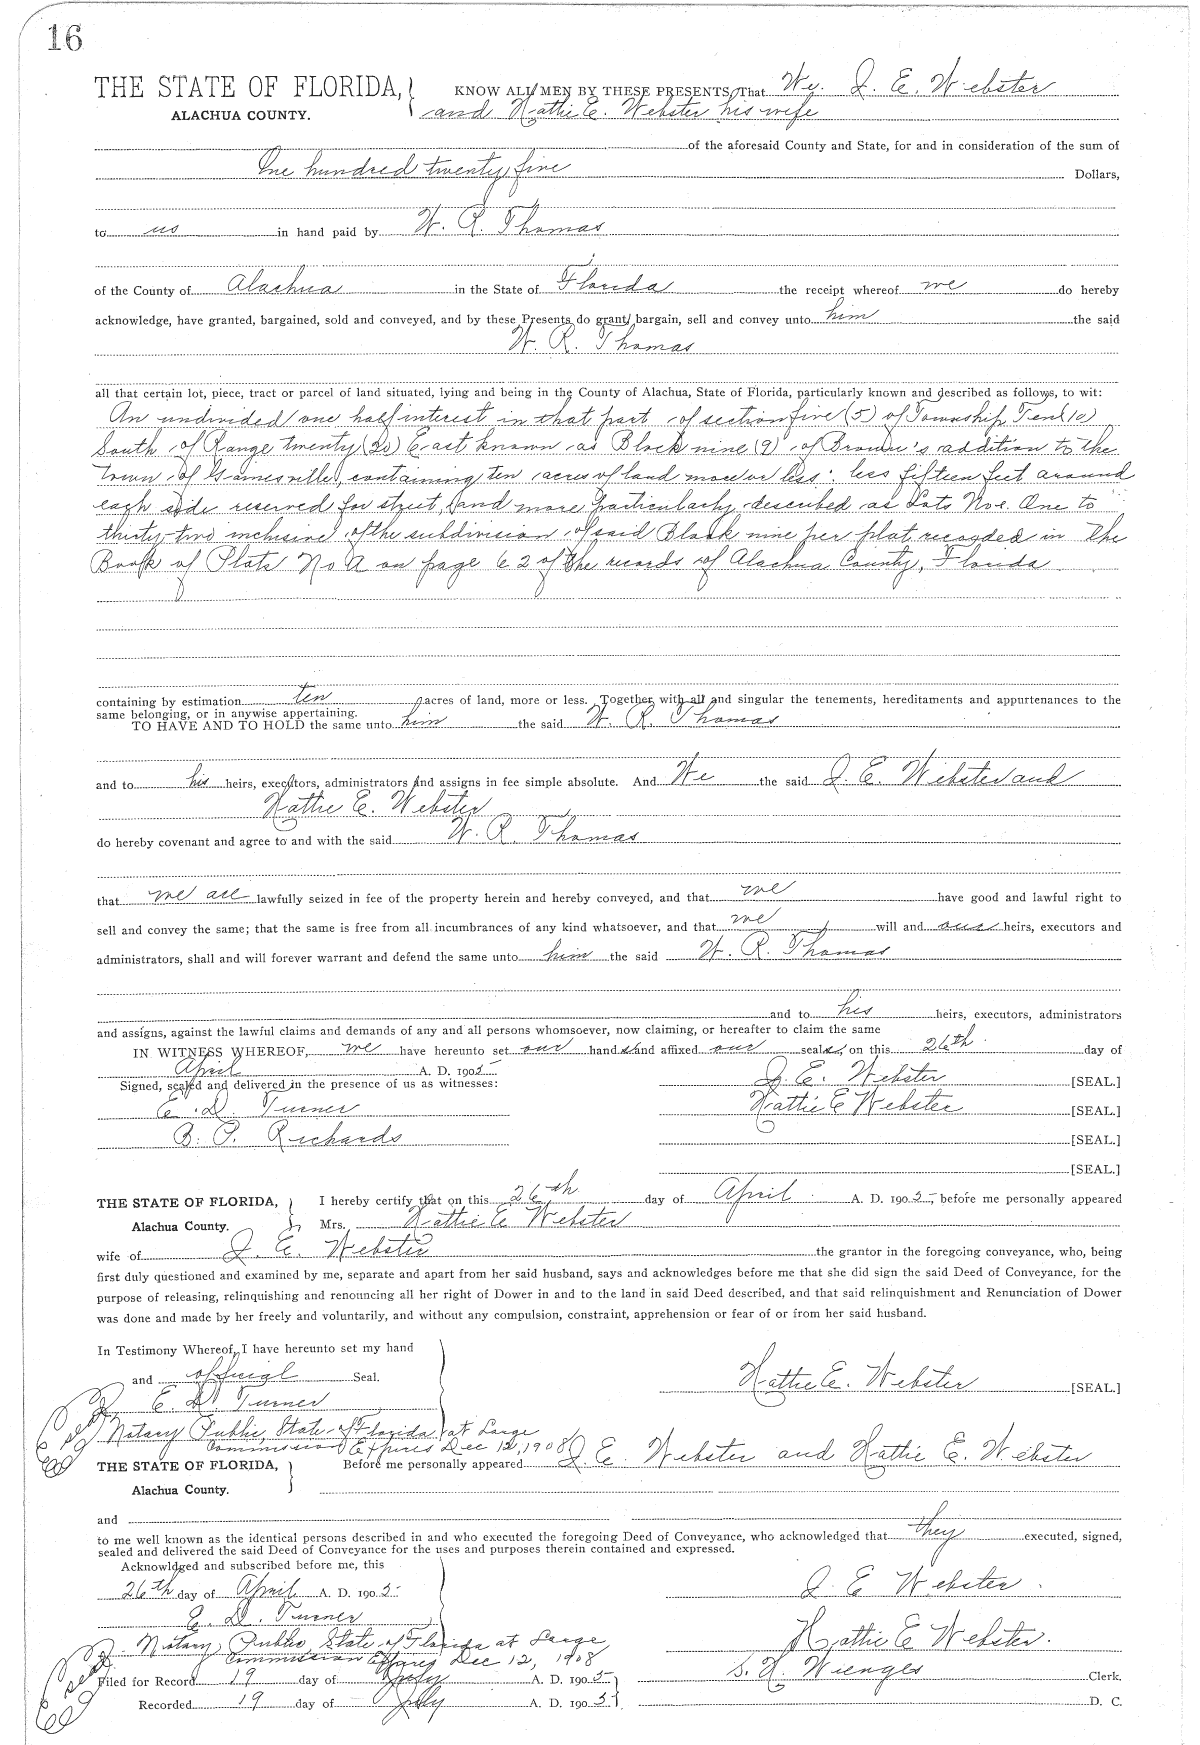 16
THE STATE OF FLORIDA, KNOW ALL MEN BY THESE PRESENTS, That We, J. E. Webster
ALACHUA COUNTY. and Hattie E. Webster his wife
of the aforesaid County and State, for and in consideration of the sum of
One hundred twenty five Dollars,
to us in hand paid by W. R. Thomas
of the County of Alachua in the State of Florida the receipt whereof we do hereby
acknowledge, have granted, bargained, sold and conveyed, and by these Presents do grant, bargain, sell and convey unto him the said
W. R. Thomas
all that certain lot, piece, tract or parcel of land situated, lying and being in the County of Alachua, State of Florida, particularly known and described as follows, to wit:
An undivided one half interest in that part of section five (5) of Township Ten (10)
South of Range twenty (20) East known as Block nine (9) of Brown's addition to the
Town of Gainesville, containing ten acres of land more or less: less fifteen feet around
each side reserved for street, and more particularly described as Lots Nos. One to
thirty-two inclusive of the subdivision of said Block nine per plat recorded in the
Book of Plats No A on page 62 of the records of Alachua County, Florida
containing by estimation ten acres of land, more or less. Together with all and singular the tenements, hereditaments and appurtenances to the
same belonging, or in anywise appertaining.
TO HAVE AND TO HOLD the same unto him the said W. R. Thomas
and to his heirs, executors, administrators and assigns in fee simple absolute. And We the said J. E. Webster and
Hattie E. Webster
do hereby covenant and agree to and with the said W. R. Thomas
that we are lawfully seized in fee of the property herein and hereby conveyed, and that we have good and lawful right to
sell and convey the same; that the same is free from all incumbrances of any kind whatsoever, and that we will and our heirs, executors and
administrators, shall and will forever warrant and defend the same unto him the said W. R. Thomas
and to his heirs, executors, administrators
and assigns, against the lawful claims and demands of any and all persons whomsoever, now claiming, or hereafter to claim the same
IN WITNESS WHEREOF, we have hereunto set our hands and affixed our seals, on this 26th day of
April A. D. 1905
Signed, sealed and delivered in the presence of us as witnesses: J. E. Webster [SEAL.]
E. D. Turner Hattie E Webster [SEAL.]
B. P. Richards [SEAL.]
[SEAL.]
THE STATE OF FLORIDA, I hereby certify that on this 26th day of April A. D. 1905, before me personally appeared
Alachua County. Mrs. Hattie E Webster
wife of J. E. Webster the grantor in the foregoing conveyance, who, being
first duly questioned and examined by me, separate and apart from her said husband, says and acknowledges before me that she did sign the said Deed of Conveyance, for the
purpose of releasing, relinquishing and renouncing all her right of Dower in and to the land in said Deed described, and that said relinquishment and Renunciation of Dower
was done and made by her freely and voluntarily, and without any compulsion, constraint, apprehension or fear of or from her said husband.
In Testimony Whereof, I have hereunto set my hand
and official Seal. Hattie E. Webster [SEAL.]
E. D. Turner
Seal Notary Public, State of Florida at Large
Commission Expires Dec 12, 1908
THE STATE OF FLORIDA, Before me personally appeared J. E. Webster and Hattie E. Webster
Alachua County.
and
to me well known as the identical persons described in and who executed the foregoing Deed of Conveyance, who acknowledged that they executed, signed,
sealed and delivered the said Deed of Conveyance for the uses and purposes therein contained and expressed.
Acknowldged and subscribed before me, this
26th day of April A. D. 1905 J. E Webster
E. D. Turner
Seal Notary Public, State of Florida at Large Hattie E Webster.
Commission Expires Dec 12, 1908
Filed for Record 19 day of July A. D. 1905 S. H. Wienges Clerk.
Recorded 19 day of July A. D. 1905 D. C.